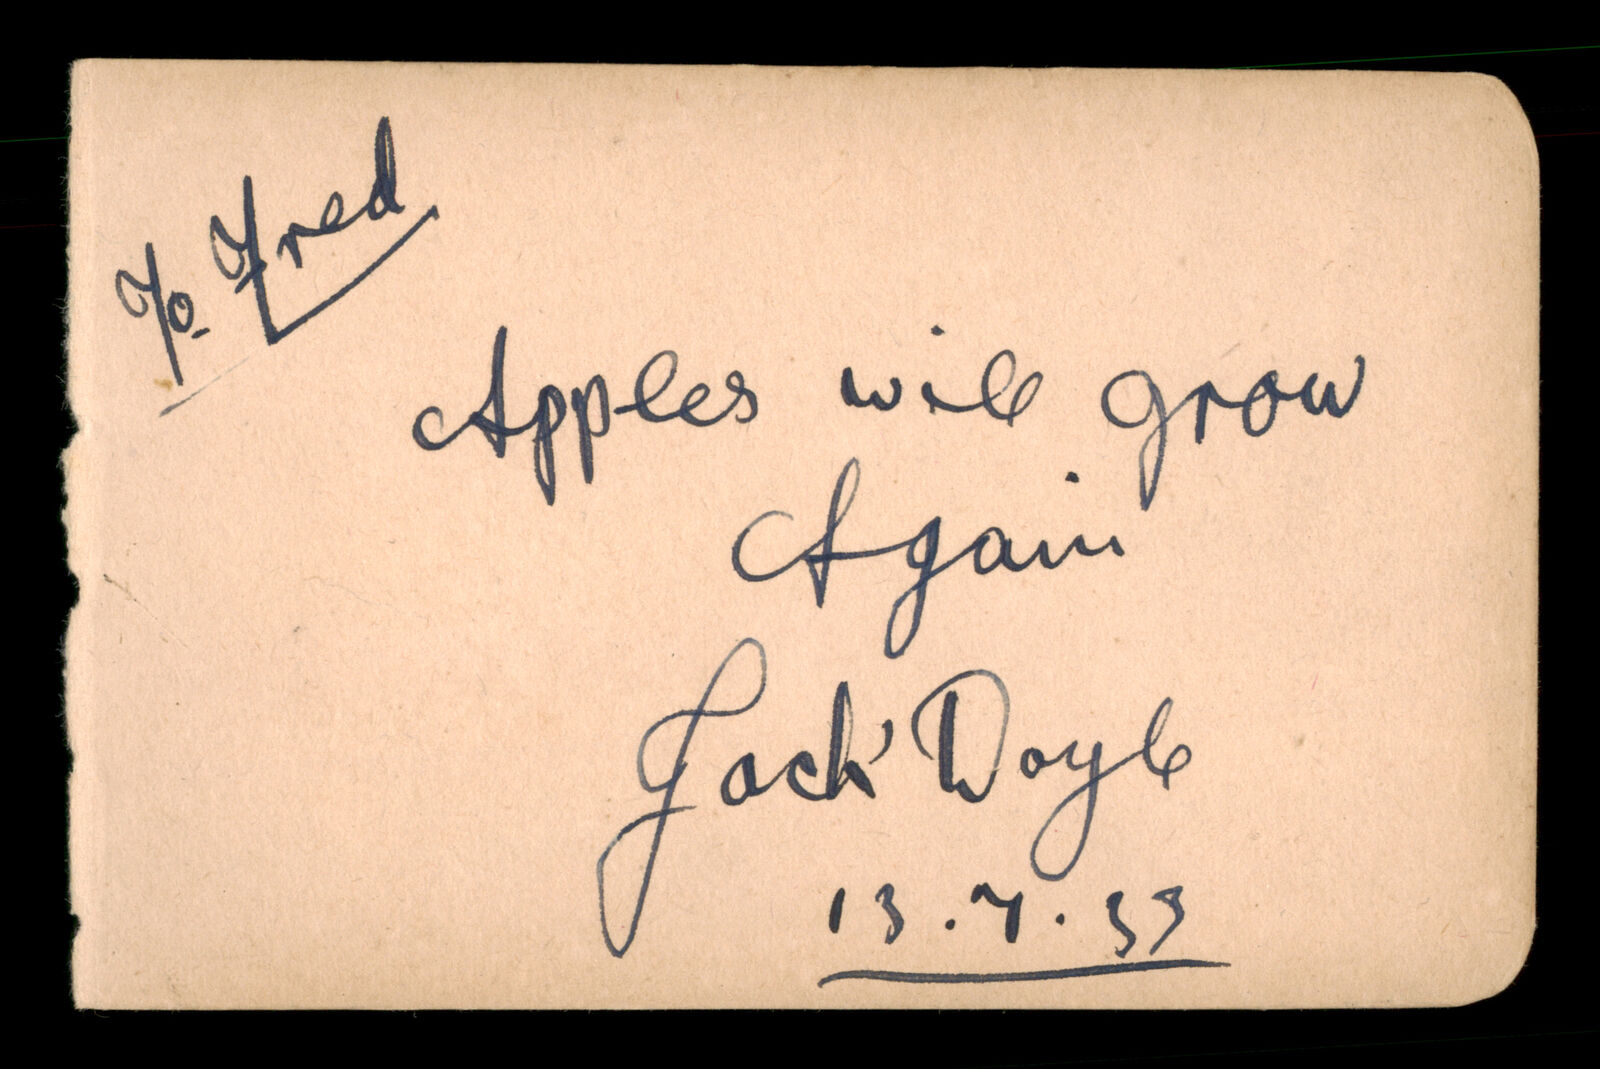 To Fred
Apples will grow
Again
Jack Doyle
13.7.33